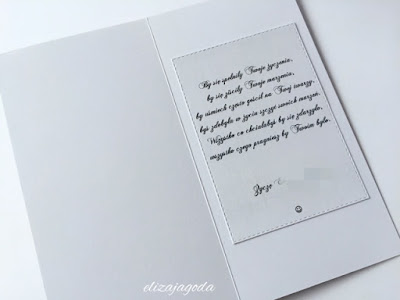 By się spełniły Twoje życzenia,
by się ziściły Twoje marzenia,
by uśmiech często gościł na Twej twarzy,
byś zdobyła w życiu szczyt swoich marzeń.
Wszystko co chciałabyś by się zdarzyło,
wszystko czego pragniesz by Twoim było.
Życzę
elizajagoda